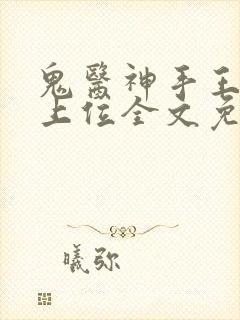 鬼醫神手王
上位全文免
曦弥